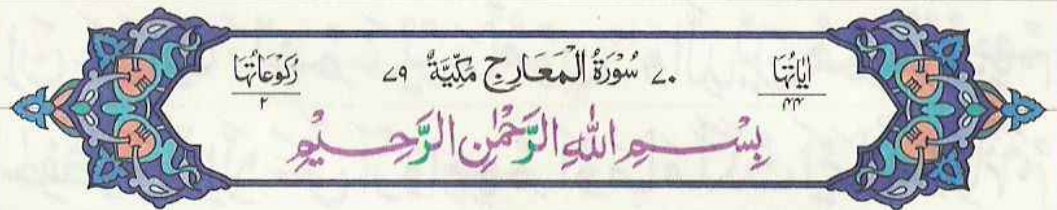 اٰیَاتُهَا ٤٤ ٧٠ سُوْرَةُ الْمَعَارِجِ مَكِّیَّةٌ ٧٩ رُكُوْعَاتُهَا ٢
بِسْمِ اللّٰهِ الرَّحْمٰنِ الرَّحِیْمِ